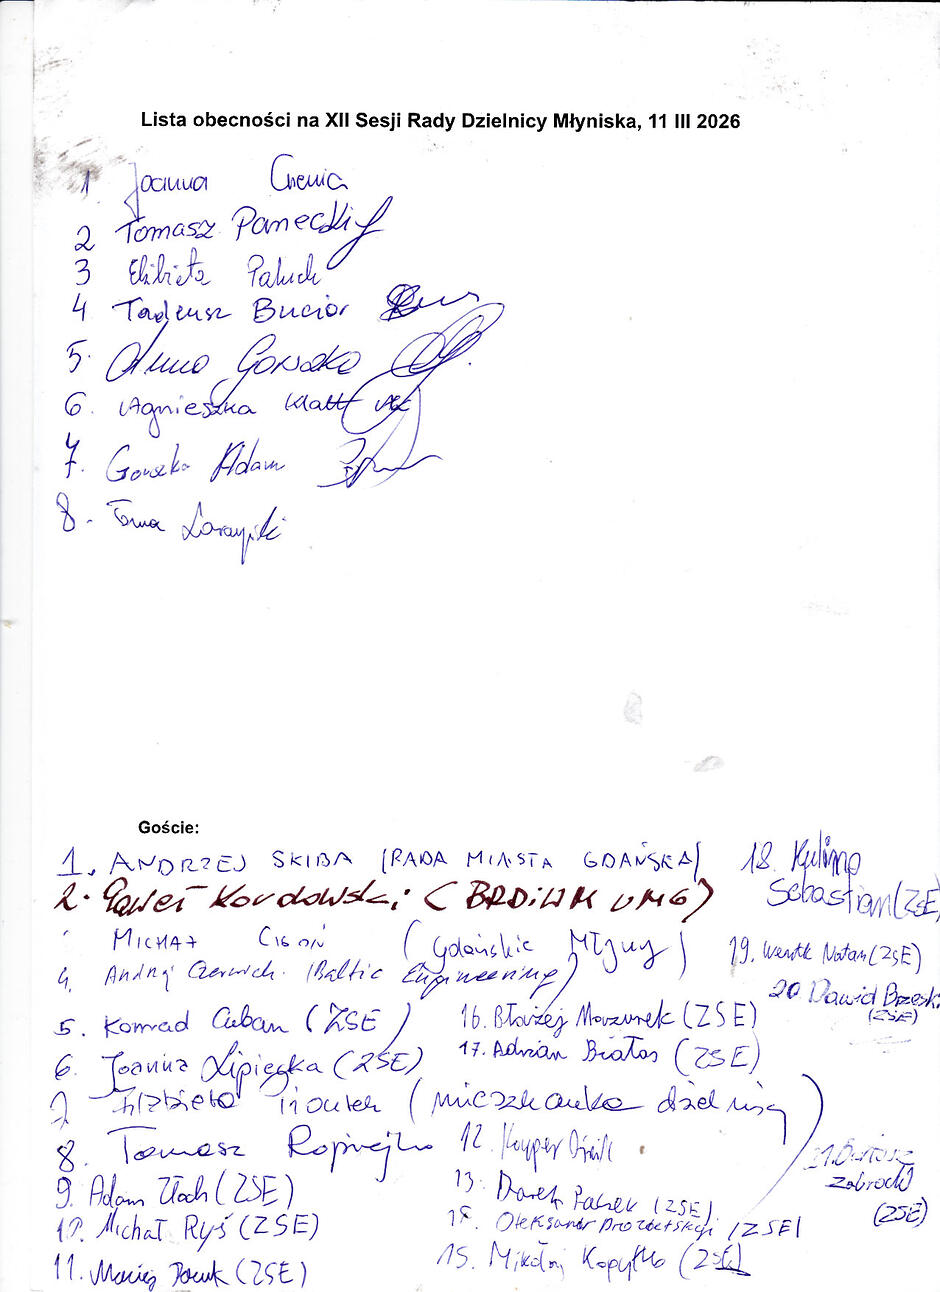 Lista obecności na XII Sesji Rady Dzielnicy Młyniska, 11 III 2026
1 Joanna
2 Tomasz Panecki
3 Elżbieta Paluch
4 Tadeusz Bucior
5. Anna Gorszka
6. Agnieszka Klatt
7. Gorszka Adam
8.
Goście:
1. ANDRZEJ SKIBA (RADA MIASTA GDAŃSKA)
2. Paweł Kordowski (BRDiWM UMG)
MICHAŁ CISOŃ (Gdańskie Młyny)
4. Andrzej (Baltic Engineering)
5. Konrad Cuban (ZSE)
6. Joanna Lipiecka (ZSE)
7 Elżbieta (mieszkanka dzielnicy)
8. Tomasz
9. Adam Złoch (ZSE)
10. Michał Ryś (ZSE)
11. Maciej (ZSE)
12. Kacper
13. Darek (ZSE)
Oleksandr (ZSE)
15. Mikołaj Kopyłko (ZSE)
16. Błażej Mazurek (ZSE)
17. Adrian Białas (ZSE)
18.
Sebastian (ZSE)
19. Natan (ZSE)
20. Dawid
(ZSE)
21. Bartosz
Zabrocki
(ZSE)